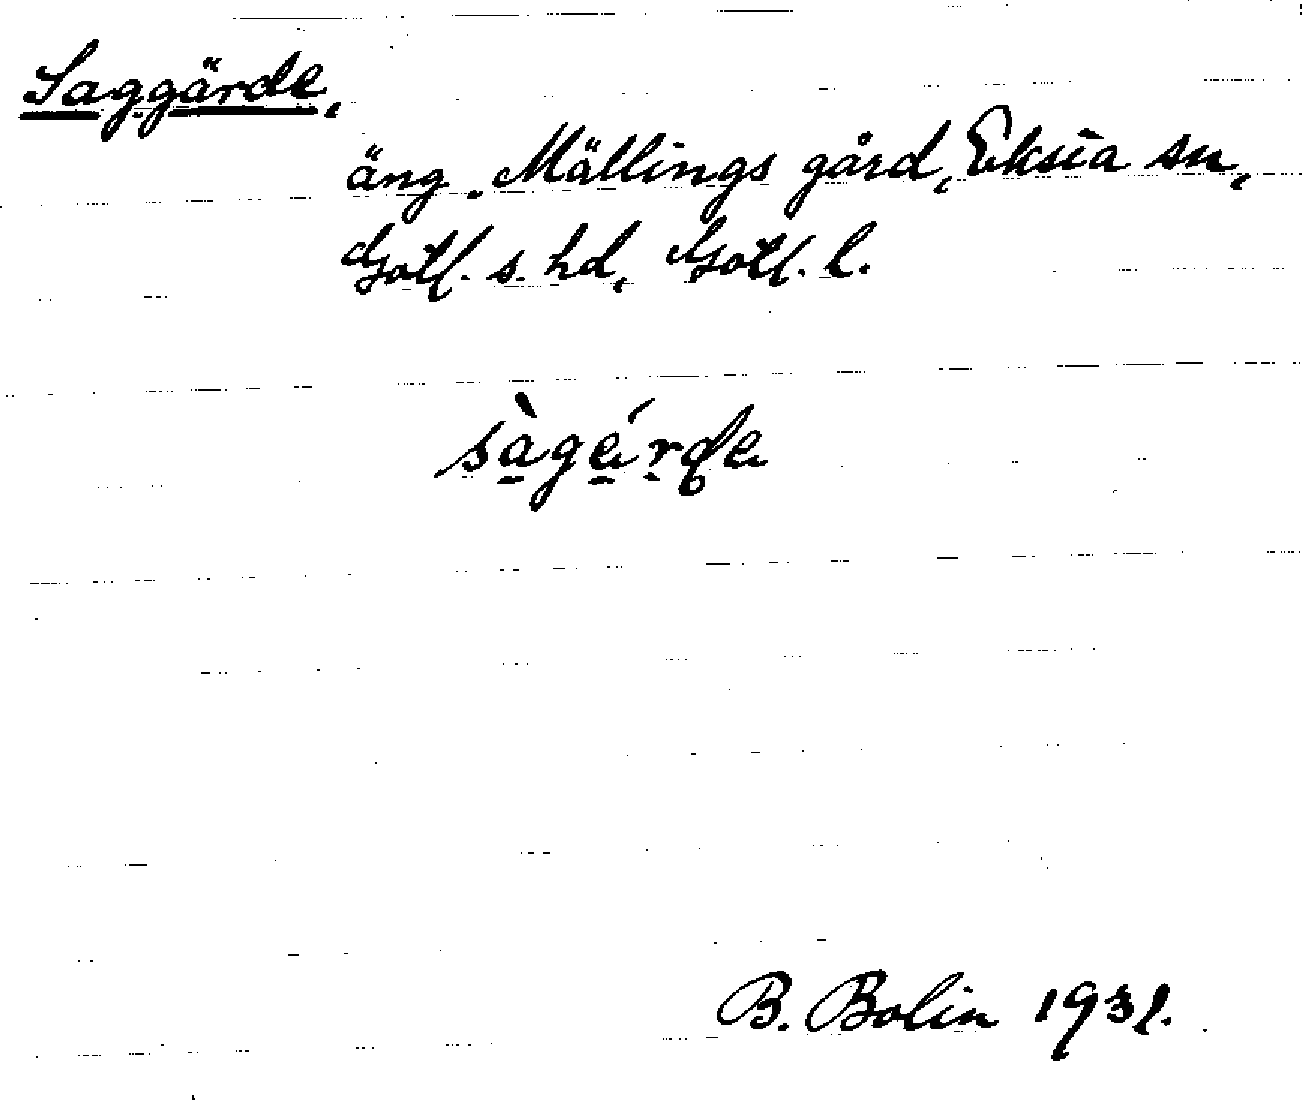 Saggärde,
äng. Mällings gård, Eksta sn,
Gotl. s. hd, Gotl. l.
sàgǽrde
B. Bolin 1931.